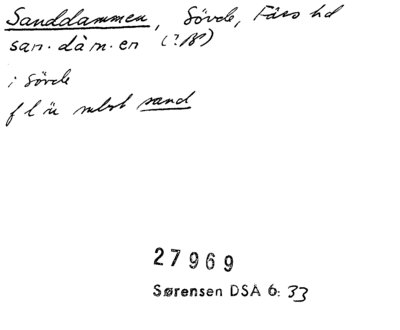 Sanddammen, Sövde, Färs hd
san·dàm·en
i Sövde
sand
27969
Sørensen DSA 6: 33